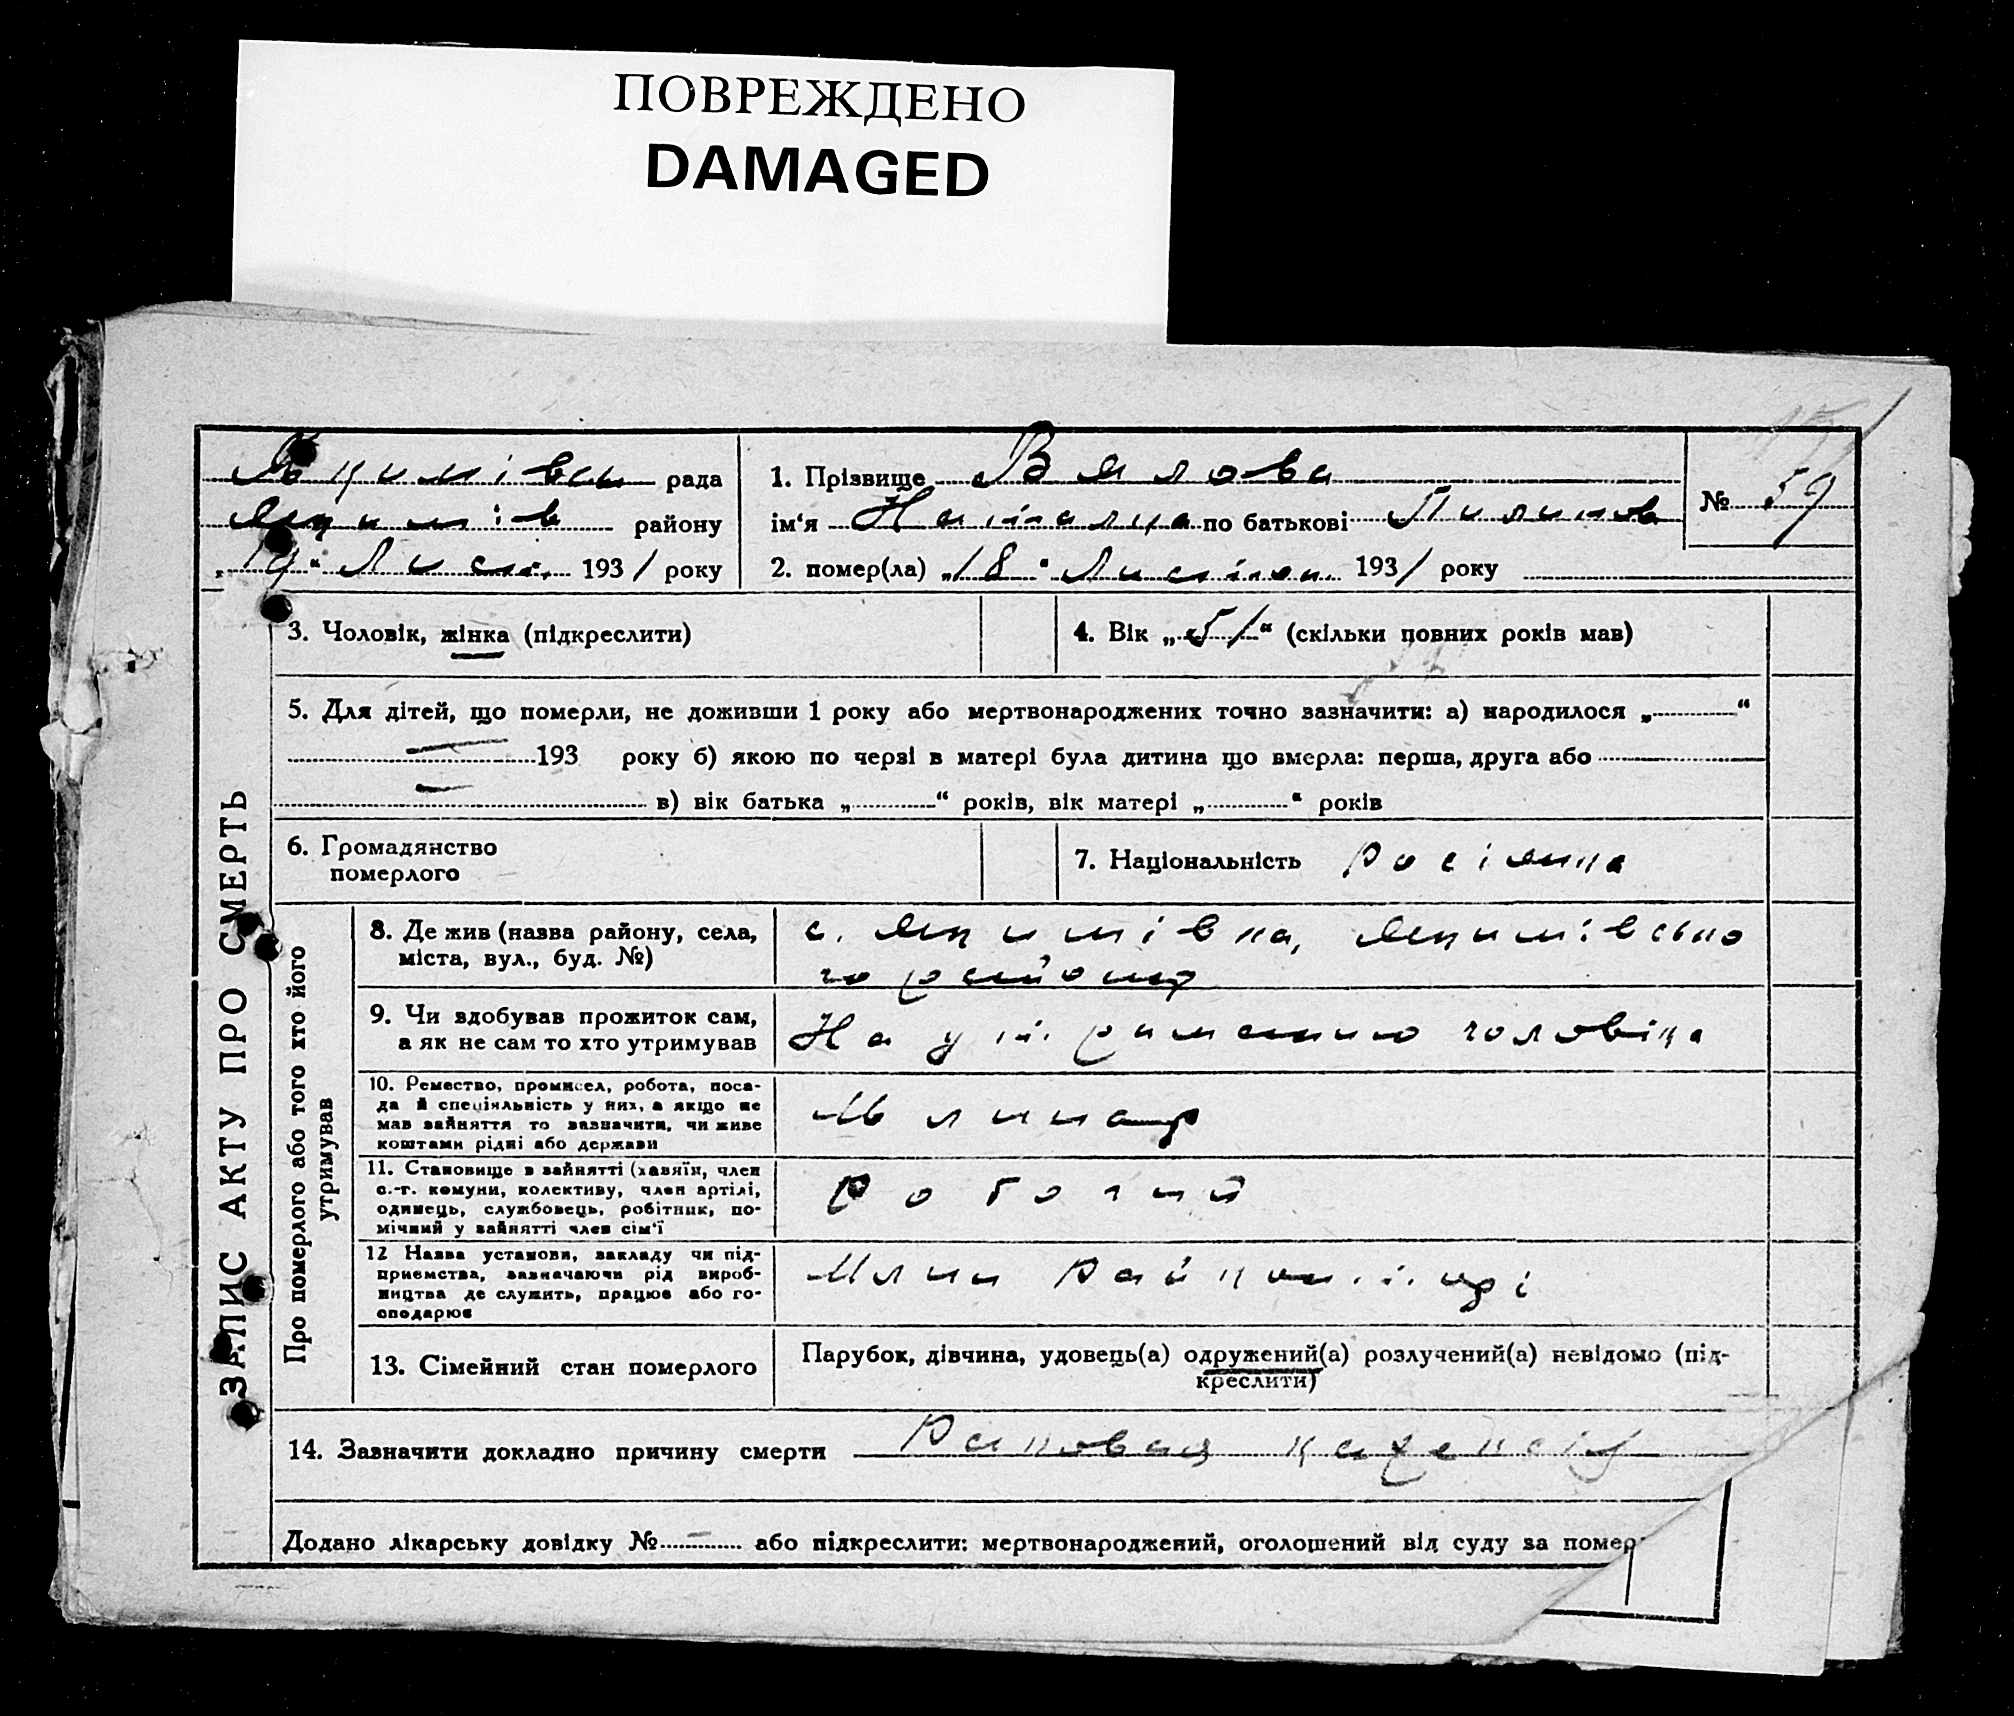 ПОВРЕЖДЕНО
DAMAGED
Якимівськ рада
Якимів району
„19“ Лист. 1931 року
1. Прізвище Вялова
ім‘я Наталка по батькові Пилипов
2. помер(ла) „18“ Листоп. 1931 року
№ 59
3. Чоловік, жінка (підкреслити)
4. Вік „51“ (скільки повних років мав)
5. Для дітей, що померли, не доживши 1 року або мертвонароджених точно зазначити: а) народилося „ “
— 193 року б) якою по черзі в матері була дитина що вмерла: перша, друга або
— в) вік батька „ “ років, вік матері „ “ років
6. Громадянство
померлого
7. Національність росіянка
ЗАПИС АКТУ ПРО СМЕРТЬ
Про померлого або того хто його
утримував
8. Де жив (назва району, села,
міста, вул., буд. №)
с. Якимівка, Якимівсько
го району
9. Чи здобував прожиток сам,
а як не сам то хто утримував
На утриманню чоловіка
10. Ремество, промисел, робота, поса-
да й спеціяльність у них, а якщо не
мав зайняття то зазначити, чи живе
коштами рідні або держави
Млинар
11. Становище в зайнятті (хазяїн, член
с.-г. комуни, колективу, член артілі,
одинець, службовець, робітник, по-
мічний у зайнятті член сім‘ї
Робочий
12 Назва установи, закладу чи під-
приємства, зазначаючи рід вироб-
ництва де служить, працює або го-
сподарює
Млин
13. Сімейний стан померлого
Парубок, дівчина, удовець(а) одружений(а) розлучений(а) невідомо (під-
креслити)
14. Зазначити докладно причину смерти
Додано лікарську довідку № — або підкреслити: мертвонароджений, оголошений від суду за помер